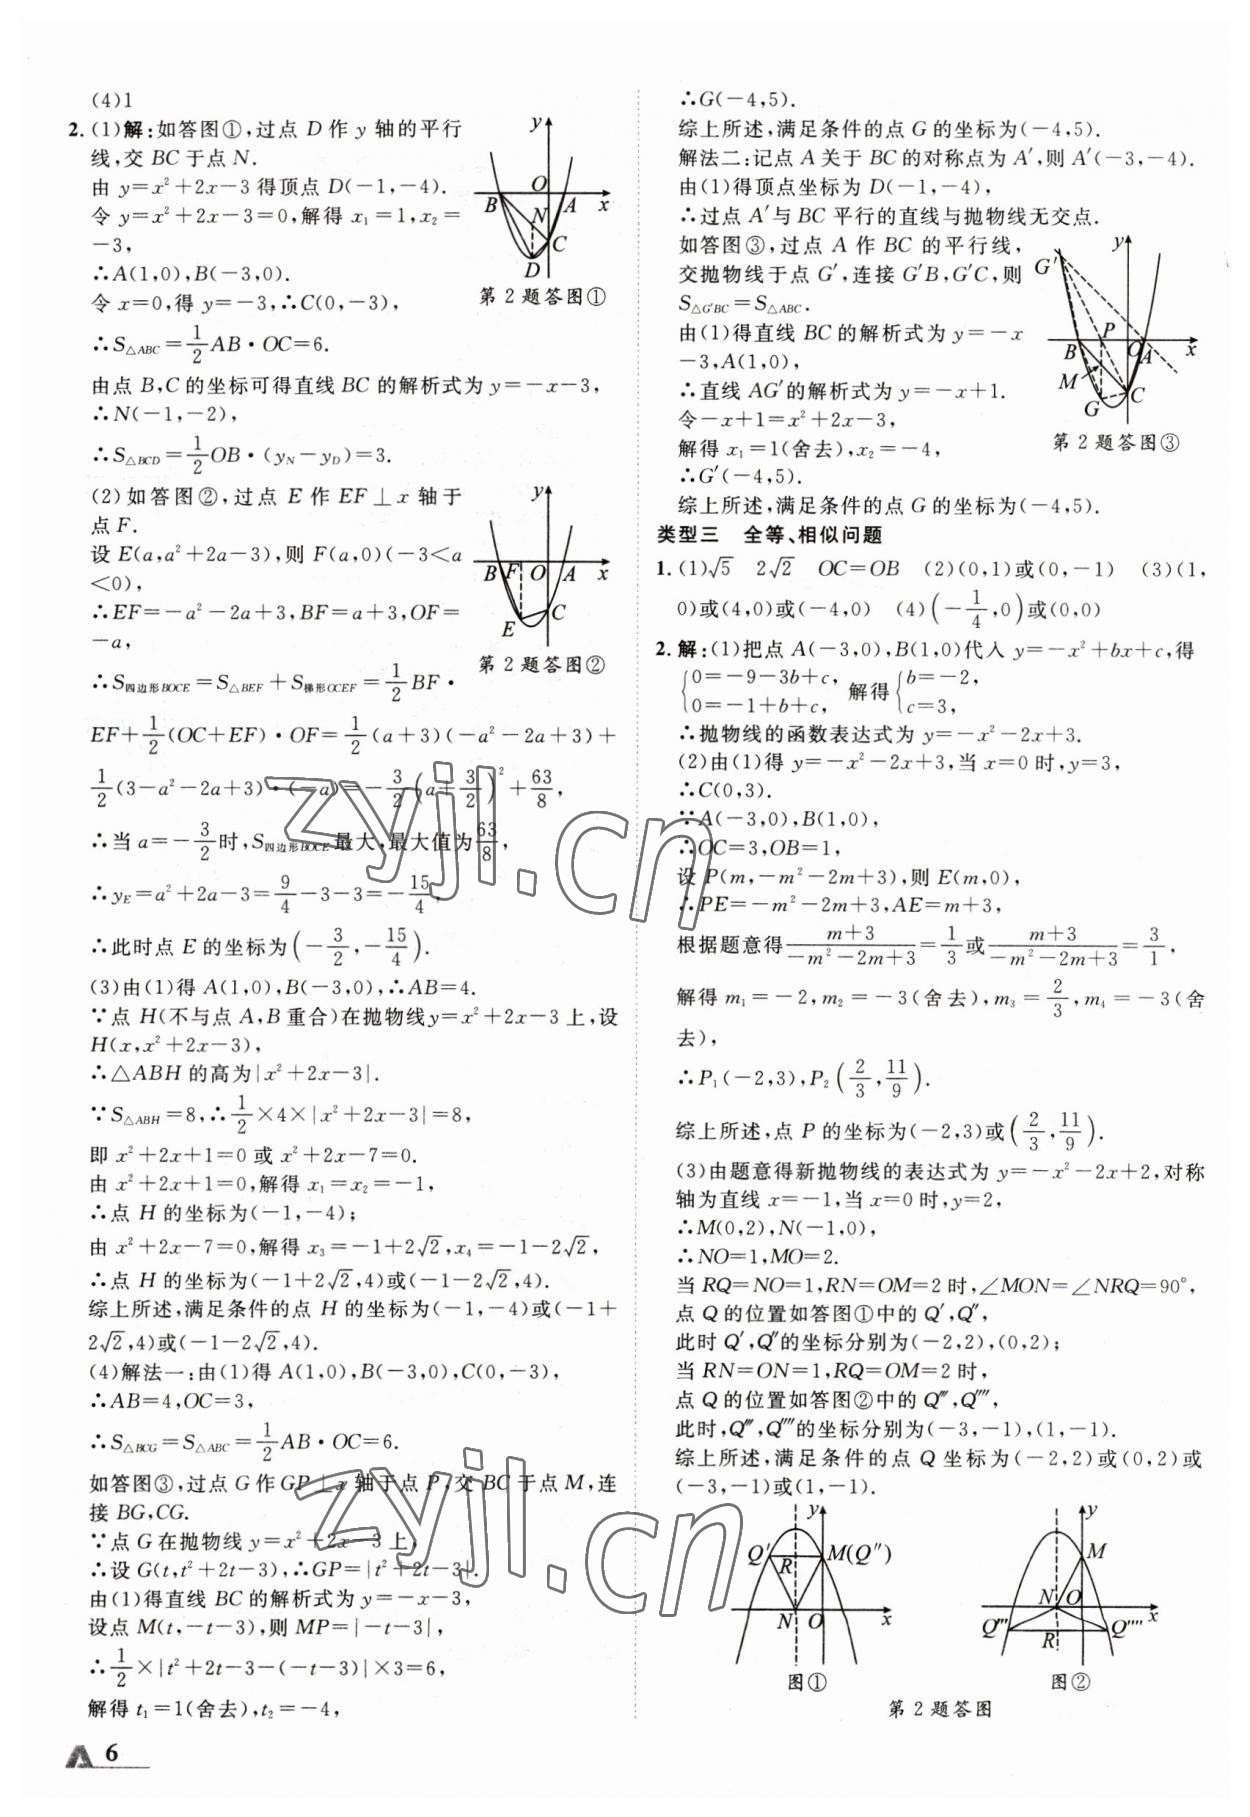 (4)1
2.(1)解:如答图①,过点 D 作 y 轴的平行
线,交 BC 于点 N.
由 y=x²+2x-3 得顶点 D(-1,-4).
令 y=x²+2x-3=0,解得 x₁=1,x₂=
-3,
∴A(1,0),B(-3,0).
令 x=0,得 y=-3,∴C(0,-3),
∴S△ABC=1/2 AB·OC=6.
由点 B,C 的坐标可得直线 BC 的解析式为 y=-x-3,
∴N(-1,-2),
∴S△BCD=1/2 OB·(y_N-y_D)=3.
y
O
B
N
A
x
C
D
第 2 题答图①
(2)如答图②,过点 E 作 EF⊥x 轴于
点 F.
设 E(a,a²+2a-3),则 F(a,0)(-3<a
<0),
∴EF=-a²-2a+3,BF=a+3,OF=
-a,
∴S四边形BOCE=S△BEF+S梯形OCEF=1/2 BF·
EF+1/2(OC+EF)·OF=1/2(a+3)(-a²-2a+3)+
1/2(3-a²-2a+3)·(-a)=-3/2(a+3/2)²+63/8,
∴当 a=-3/2时,S四边形BOCE最大,最大值为63/8,
∴y_E=a²+2a-3=9/4-3-3=-15/4,
∴此时点 E 的坐标为(-3/2,-15/4).
y
B
F
O
A
x
C
E
第 2 题答图②
(3)由(1)得 A(1,0),B(-3,0),∴AB=4.
∵点 H(不与点 A,B 重合)在抛物线y=x²+2x-3 上,设
H(x,x²+2x-3),
∴△ABH 的高为|x²+2x-3|.
∵S△ABH=8,∴1/2×4×|x²+2x-3|=8,
即 x²+2x+1=0 或 x²+2x-7=0.
由 x²+2x+1=0,解得 x₁=x₂=-1,
∴点 H 的坐标为(-1,-4);
由 x²+2x-7=0,解得 x₃=-1+2√2,x₄=-1-2√2,
∴点 H 的坐标为(-1+2√2,4)或(-1-2√2,4).
综上所述,满足条件的点 H 的坐标为(-1,-4)或(-1+
2√2,4)或(-1-2√2,4).
(4)解法一:由(1)得 A(1,0),B(-3,0),C(0,-3),
∴AB=4,OC=3,
∴S△BCG=S△ABC=1/2 AB·OC=6.
如答图③,过点 G 作 GP⊥x 轴于点 P,交 BC 于点 M,连
接 BG,CG.
∵点 G 在抛物线 y=x²+2x-3 上,
∴设 G(t,t²+2t-3),∴GP=|t²+2t-3|.
由(1)得直线 BC 的解析式为 y=-x-3,
设点 M(t,-t-3),则 MP=|-t-3|,
∴1/2×|t²+2t-3-(-t-3)|×3=6,
解得 t₁=1(舍去),t₂=-4,
∴G(-4,5).
综上所述,满足条件的点 G 的坐标为(-4,5).
解法二:记点 A 关于 BC 的对称点为 A′,则 A′(-3,-4).
由(1)得顶点坐标为 D(-1,-4),
∴过点 A′与 BC 平行的直线与抛物线无交点.
如答图③,过点 A 作 BC 的平行线,
交抛物线于点 G′,连接 G′B,G′C,则
S△G′BC=S△ABC.
由(1)得直线 BC 的解析式为 y=-x
-3,A(1,0),
∴直线 AG′的解析式为 y=-x+1.
令-x+1=x²+2x-3,
解得 x₁=1(舍去),x₂=-4,
∴G′(-4,5).
综上所述,满足条件的点 G 的坐标为(-4,5).
y
G′
P
B
O
A
x
M
C
G
第 2 题答图③
类型三 全等、相似问题
1.(1)√5 2√2 OC=OB (2)(0,1)或(0,-1) (3)(1,
0)或(4,0)或(-4,0) (4)(-1/4,0)或(0,0)
2.解:(1)把点 A(-3,0),B(1,0)代入 y=-x²+bx+c,得
{0=-9-3b+c, 0=-1+b+c, 解得{b=-2, c=3,
∴抛物线的函数表达式为 y=-x²-2x+3.
(2)由(1)得 y=-x²-2x+3,当 x=0 时,y=3,
∴C(0,3).
∵A(-3,0),B(1,0),
∴OC=3,OB=1,
设 P(m,-m²-2m+3),则 E(m,0),
∴PE=-m²-2m+3,AE=m+3,
根据题意得 (m+3)/(-m²-2m+3)=1/3或(m+3)/(-m²-2m+3)=3/1,
解得 m₁=-2,m₂=-3(舍去),m₃=2/3,m₄=-3(舍
去),
∴P₁(-2,3),P₂(2/3,11/9).
综上所述,点 P 的坐标为(-2,3)或(2/3,11/9).
(3)由题意得新抛物线的表达式为 y=-x²-2x+2,对称
轴为直线 x=-1,当 x=0 时,y=2,
∴M(0,2),N(-1,0),
∴NO=1,MO=2.
当 RQ=NO=1,RN=OM=2 时,∠MON=∠NRQ=90°,
点 Q 的位置如答图①中的 Q′,Q″,
此时 Q′,Q″的坐标分别为(-2,2),(0,2);
当 RN=ON=1,RQ=OM=2 时,
点 Q 的位置如答图②中的 Q‴,Q⁗,
此时,Q‴,Q⁗的坐标分别为(-3,-1),(1,-1).
综上所述,满足条件的点 Q 坐标为(-2,2)或(0,2)或
(-3,-1)或(1,-1).
y
Q′
R
M(Q″)
N
O
x
图①
y
M
N
O
x
Q‴
R
Q⁗
图②
第 2 题答图
zyjl.cn
zyjl.cn
6